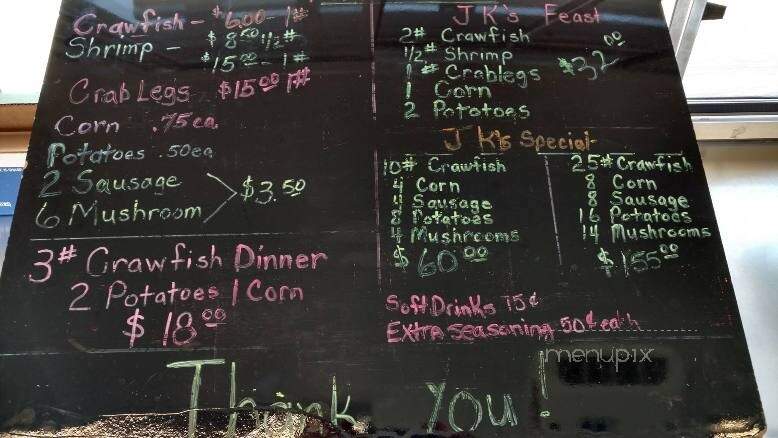 Crawfish - $6.00 - 1#
Shrimp - $8.50 1/2#
$15.00 - 1#
Crab Legs $15.00 1#
Corn .75 ea
Potatoes .50 ea
2 Sausage
6 Mushroom
$3.50
3# Crawfish Dinner
2 Potatoes 1 Corn
$18.00
JK's Feast
2# Crawfish
1/2# Shrimp
1# Crablegs
1 Corn
2 Pototoes
$32.00
JK's Special
10# Crawfish
4 Corn
4 Sausage
8 Potatoes
4 Mushrooms
$60.00
25# Crawfish
8 Corn
8 Sausage
16 Potatoes
14 Mushrooms
$155.00
Soft Drinks 75¢
Extra Seasoning 50¢ each
menupix
Thank You!